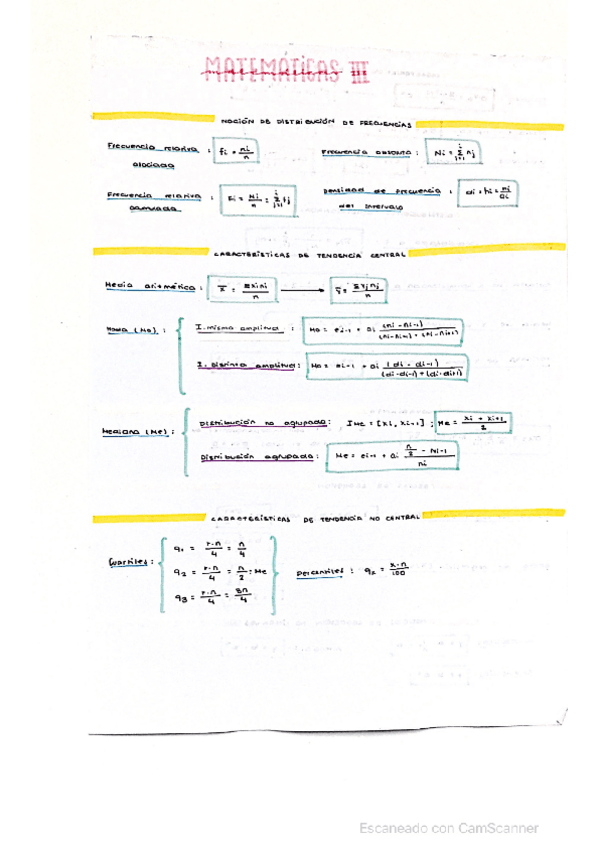 MATEMÁTICAS III
NOCIÓN DE DISTRIBUCIÓN DE FRECUENCIAS
Frecuencia relativa : fi = ni/n
Frecuencia absoluta : Ni = Σ nj
Frecuencia relativa : Fi = Ni/n = Σ fj
Densidad de frecuencia : di = hi = ni/ai
del intervalo
CARACTERÍSTICAS DE TENDENCIA CENTRAL
Media aritmética : x̄ = Σxini/n → 
Moda (Mo) :
I. misma amplitud : Mo = ei-1 + ai (ni - ni-1)/(ni - ni-1) + (ni - ni+1)
I. distinta amplitud : Mo = ei-1 + ai (di - di-1)/(di - di-1) + (di - di+1)
Mediana (Me) :
Distribución no agrupada : IMe = [xi, xi+1] ; Me = xi + xi+1/2
Distribución agrupada : Me = ei-1 + ai n/2 - Ni-1/ni
CARACTERÍSTICAS DE TENDENCIA NO CENTRAL
Cuartiles :
q1 = r·n/4 = n/4
q2 = r·n/4 = n/2 : Me
q3 = r·n/4 = 3n/4
Percentiles :
Escaneado con CamScanner